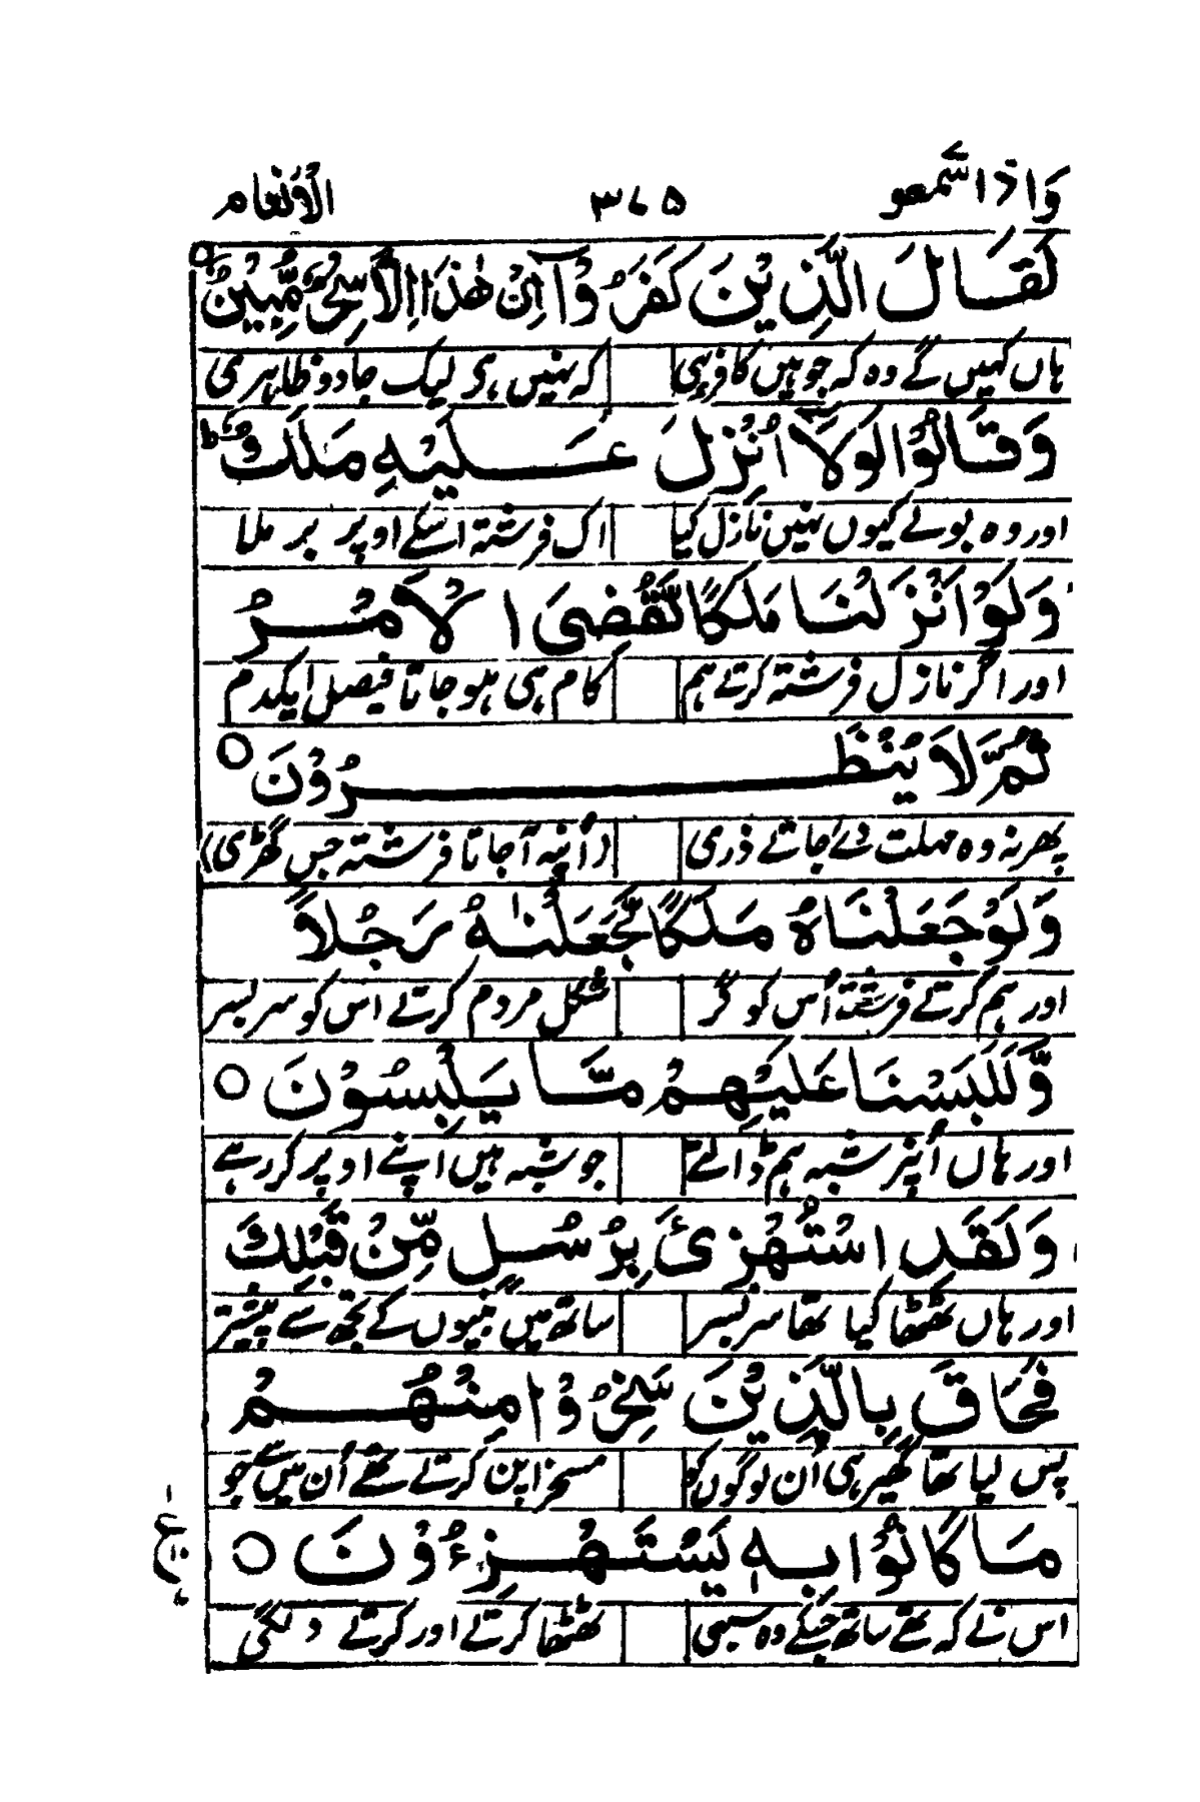 وَاِذَا سَمِعُوْ ۳۷۵ الْاَنْعَام
لَقَالَ الَّذِيْنَ كَفَرُوْۤا اِنْ هٰذَاۤ اِلَّا سِحْرٌ مُّبِيْنٌ ○
ہاں کہیں گے وہ کہ جو ہیں کافر ہی کہ نہیں ہی لیک جادو ظاہری
وَقَالُوْا لَوْلَاۤ اُنْزِلَ عَلَيْهِ مَلَكٌ ؕ
اور وہ بولے کیوں نہیں نازل کیا اک فرشتہ اسکے اوپر بر ملا
وَلَوْ اَنْزَلْنَا مَلَكًا لَّقُضِىَ الْاَمْرُ
اور اگر نازل فرشتہ کرتے ہم کام ہی ہو جاتا فیصل ایکدم
ثُمَّ لَا يُنْظَرُوْنَ ○
پھر نہ وہ مہلت دئے جاتے ذری (اُنپہ آجاتا فرشتہ جس گھڑی)
وَلَوْ جَعَلْنَاهُ مَلَكًا لَّجَعَلْنٰهُ رَجُلًا
اور ہم کرتے فرشتہ اُس کو گر شکل مردم کرتے اس کو سر بسر
وَّلَلَبَسْنَا عَلَيْهِمْ مَّا يَلْبِسُوْنَ ○
اور ہاں اُنپر شبہ ہم ڈالتے جو شبہ ہیں اپنے اوپر کر رہے
وَلَقَدِ اسْتُهْزِئَ بِرُسُلٍ مِّنْ قَبْلِكَ
اور ہاں ٹھٹھا کیا تھا سر بسر ساتھ میں نبیوں کے تجھ سے پیشتر
فَحَاقَ بِالَّذِيْنَ سَخِرُوْا مِنْهُمْ
پس لیا تھا گھیر ہی اُن لوگوں کو مسخراپن کرتے تھے اُن میں سے جو
مَا كَانُوْا بِهٖ يَسْتَهْزِءُوْنَ ○
اس نے کہ تھے ساتھ جسکے وہ سبھی ٹھٹھا کرتے اور کرتے دلگی